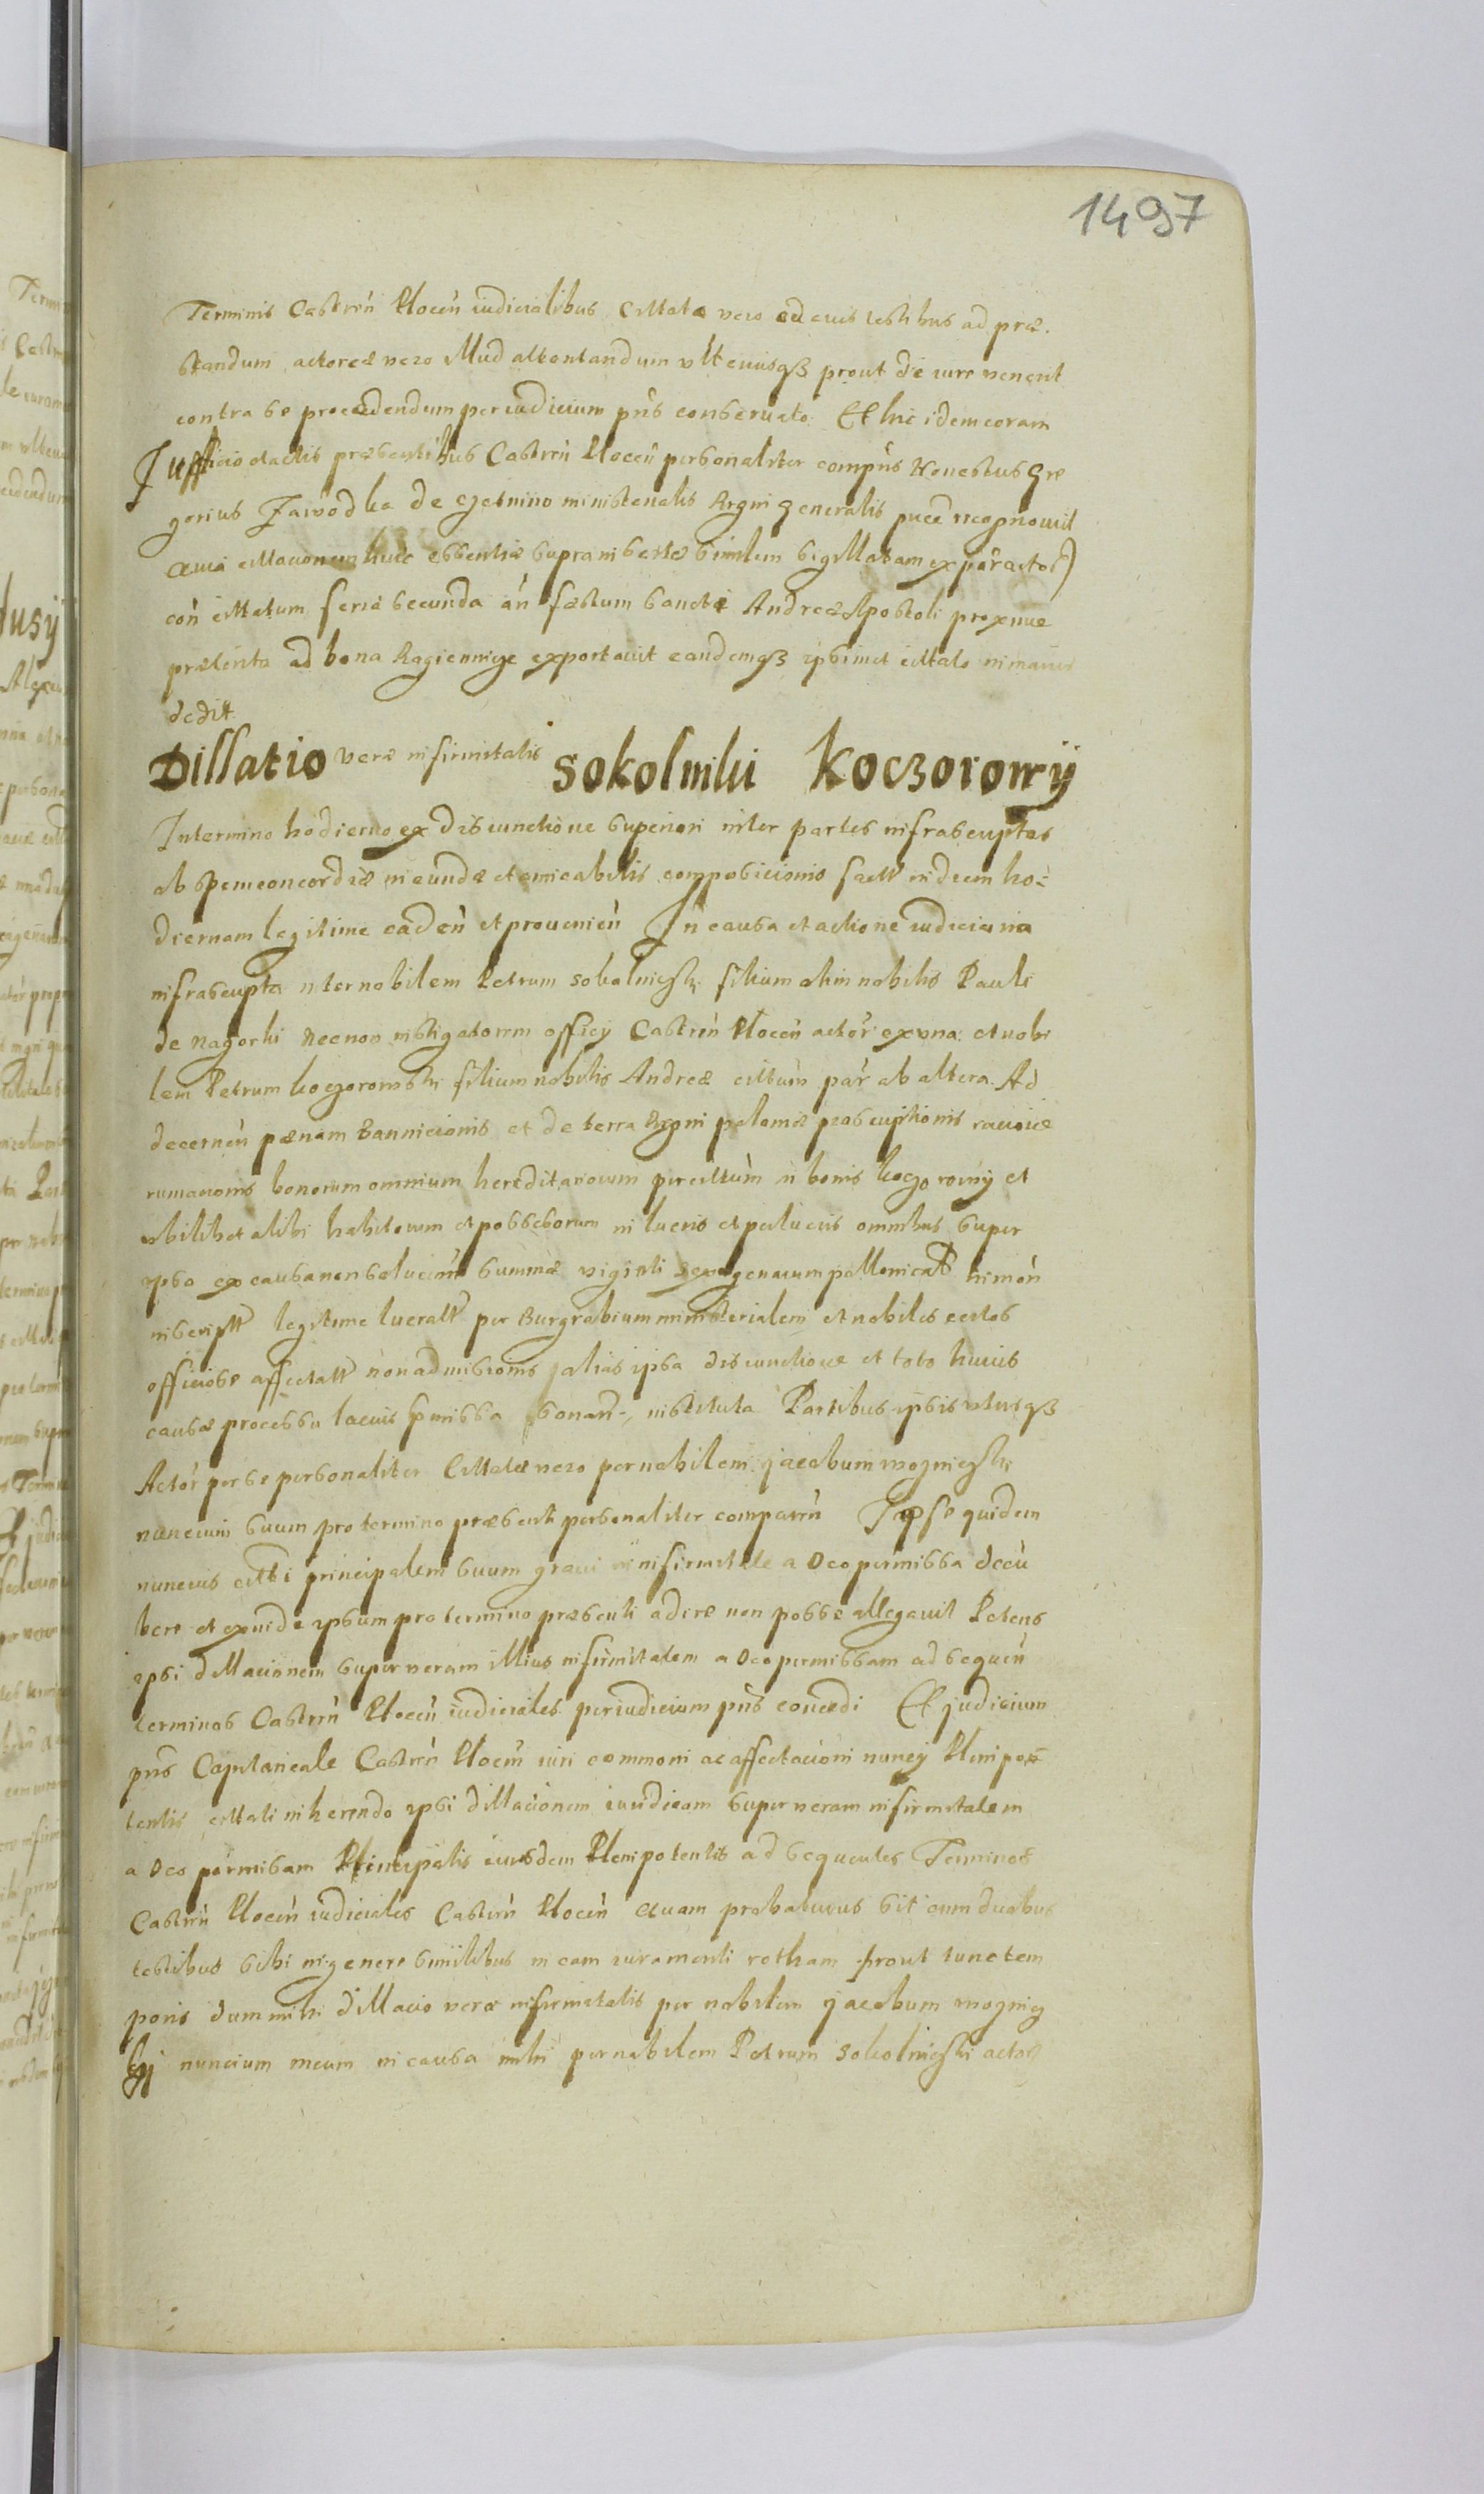 1497
Terminis Castren̄ Plocen̄ iudicialibus Cittatæ vero ad eius testibus ad præ.
standum actoreæ vero illud attentandum vlteriusqȝ prout de iure venerit
contra se procedendum per iudicium pn̄s conseruato Et hic idem coram
Jufficio et actis præsentibus Castren̄ Plocen̄ personaliter compn̄s Honestus Gre
gorius Zawodka de ministerialis Regni generalis recognouit
quia cittacionem huic essentiæ supra insertæ similem sigillatam ex par actor
con̄ cittatum feria secunda an̄ fæstum Sancti Andreæ Apostoli proxime
præterita ad bona Ragiennige exportauit eandemqȝ ipsimet cittato in manus
dedit
Dillatio veræ infirmitatis Sokolnihi Koczorowÿ
In termino hodierno ex disiunctione superiori inter partes infrascriptas
ob spem concordiæ ineundæ et amicabilis composicionis fact in diem ho=
diernam legitime caden̄ et prouenien̄ In causa et actione iudiciaria
infrascripta inter nobilem Petrum Sokolnigski filium olim nobilis Pauli
de Nagorki Necnon instigatorem officy Castren̄ Plocen̄ actor̄ ex vna et nobi
lem Petrum kogorowski filium nobilis Andreæ cittum par̄ ab altera Ad
decernen̄ pænam Bannicionis et de terra Regni poloniæ proscriptionis
rumacionis bonorum omnium hereditariorum per cittum in bonis kogorowy et
vbilibet alibi habitorum et possessorum in lucris et perlucris omnibus super
ipso ex causa non solucionis summæ viginti sexagenarum pollonical in non
inscript legitime lucratt per Burgrabium ministerialem et nobiles certos
officiose affectatt non admissionis alias ipsa disiunctione et toto huius
causæ processu lacius expressa instituta Partibus ipsis vtrisqȝ
Actor̄ per se personaliter Cittatæ vero per nobilem jacobum wozniegski
nuncium suum pro termino præsenti personaliter comparen̄ Ipse quidem
nuncius citti principalem suum graui infirmitate a Deo permissa decu
bere et exinde ipsum pro termino præsenti adire non posse allegauit Petens
ipsi dillacionem super veram illius infirmitatem a Deo permissam ad sequen̄
terminos Castren̄ Plocen̄ iudiciales per iudicium pn̄s concedi Et judicium
pn̄s Capitaneale Castren̄ Plocen̄ iuri commoni ac affectacioni nuncy Plenipo=
tentis cittati inherendo ipsi dillacionem iuridicam super veram infirmitatem
a Deo permisam Principalis eiusdem Plenipotentis ad sequentes Terminos
Castren̄ Plocen̄ iudiciales Castren̄ Plocen̄ Quam probaturus sit cum duobus
testibus sibi in genere similibus in eam iuramenti rotham prout tunc tem
poris dum mihi dillacio veræ infirmitatis per nobilem jacobum woznieg
ski nuncium meum in causa mihi per nobilem Petrum Sokolnigski actor